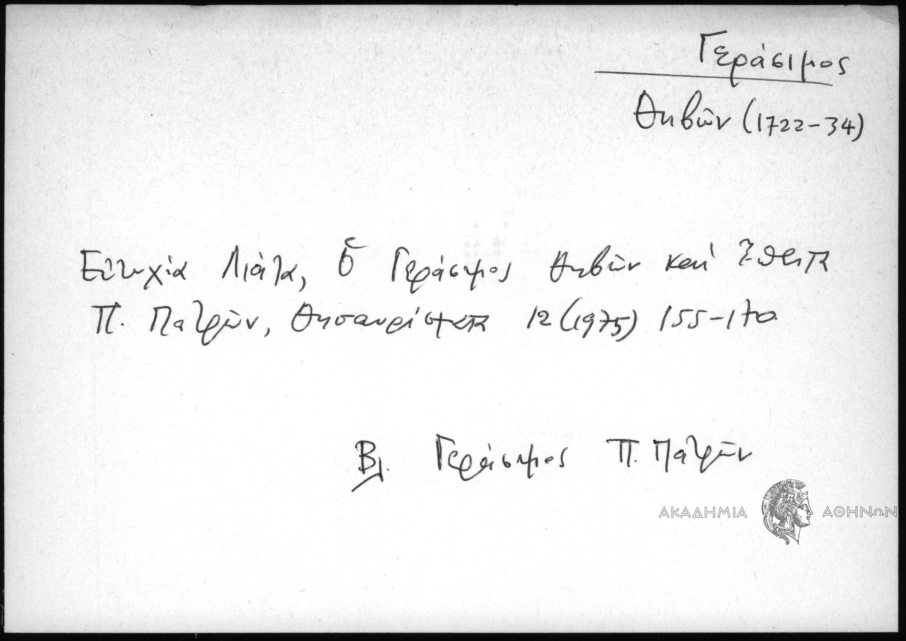 Γεράσιμος
Θηβῶν (1722-34)
Εὐτυχία Λιάτα, Ὁ Γεράσιμος Θηβῶν καὶ ἔπειτα
Π. Πατρῶν, Θησαυρίσματα 12 (1975) 155-170
Βλ. Γεράσιμος Π. Πατρῶν
ΑΚΑΔΗΜΙΑ ΑΘΗΝΩΝ